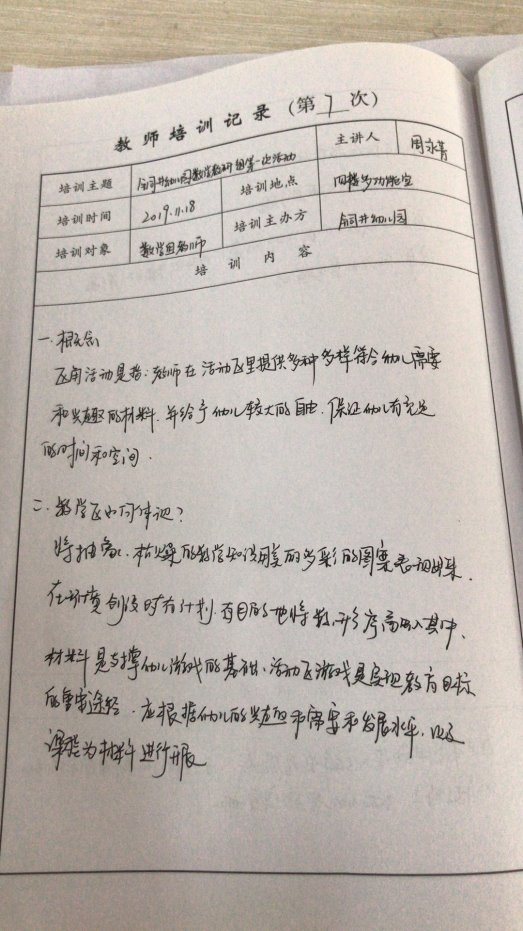 教师培训记录（第7次）
培训主题 铜井幼儿园数学教研组第一次活动 主讲人 周
培训时间 2019.11.18 培训地点 四楼多功能室
培训对象 数学组教师 培训主办方 铜井幼儿园
培训内容
一.概念
区角活动是指:教师在活动区里提供多种多样符合幼儿需要
和兴趣的材料.并给予幼儿较大的自由.保证幼儿有充足
的时间和空间.
二.数学区如何体现?
将抽象、枯燥的数学知识用美的多彩的图案表现出来.
在环境创设时有计划.有目的地将数,形,序 融入其中.
材料是支撑幼儿游戏的基础、活动区游戏是实现教育目标
的重要途径.应根据幼儿的兴趣和需要和发展水平,以及
课程为材料进行开展